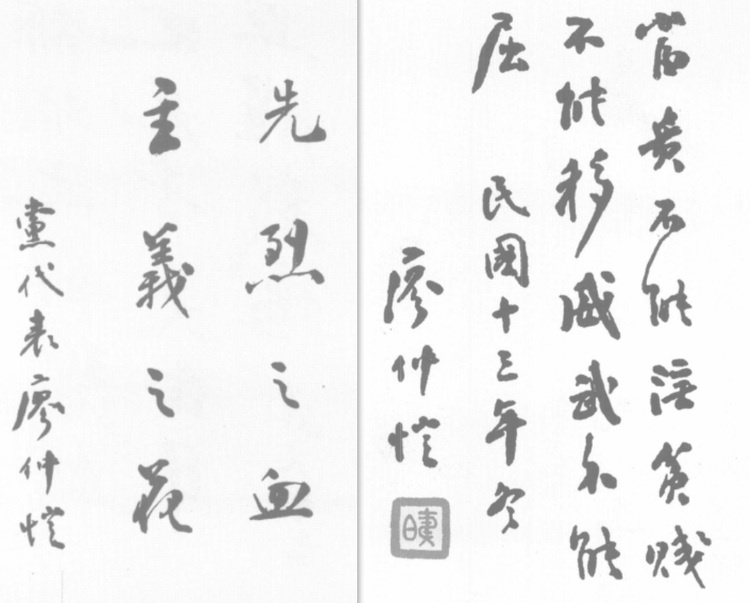 富貴不能淫貧賤
不能移威武不能
屈
民國十三年冬
廖仲愷
先烈之血
主義之花
黨代表廖仲愷